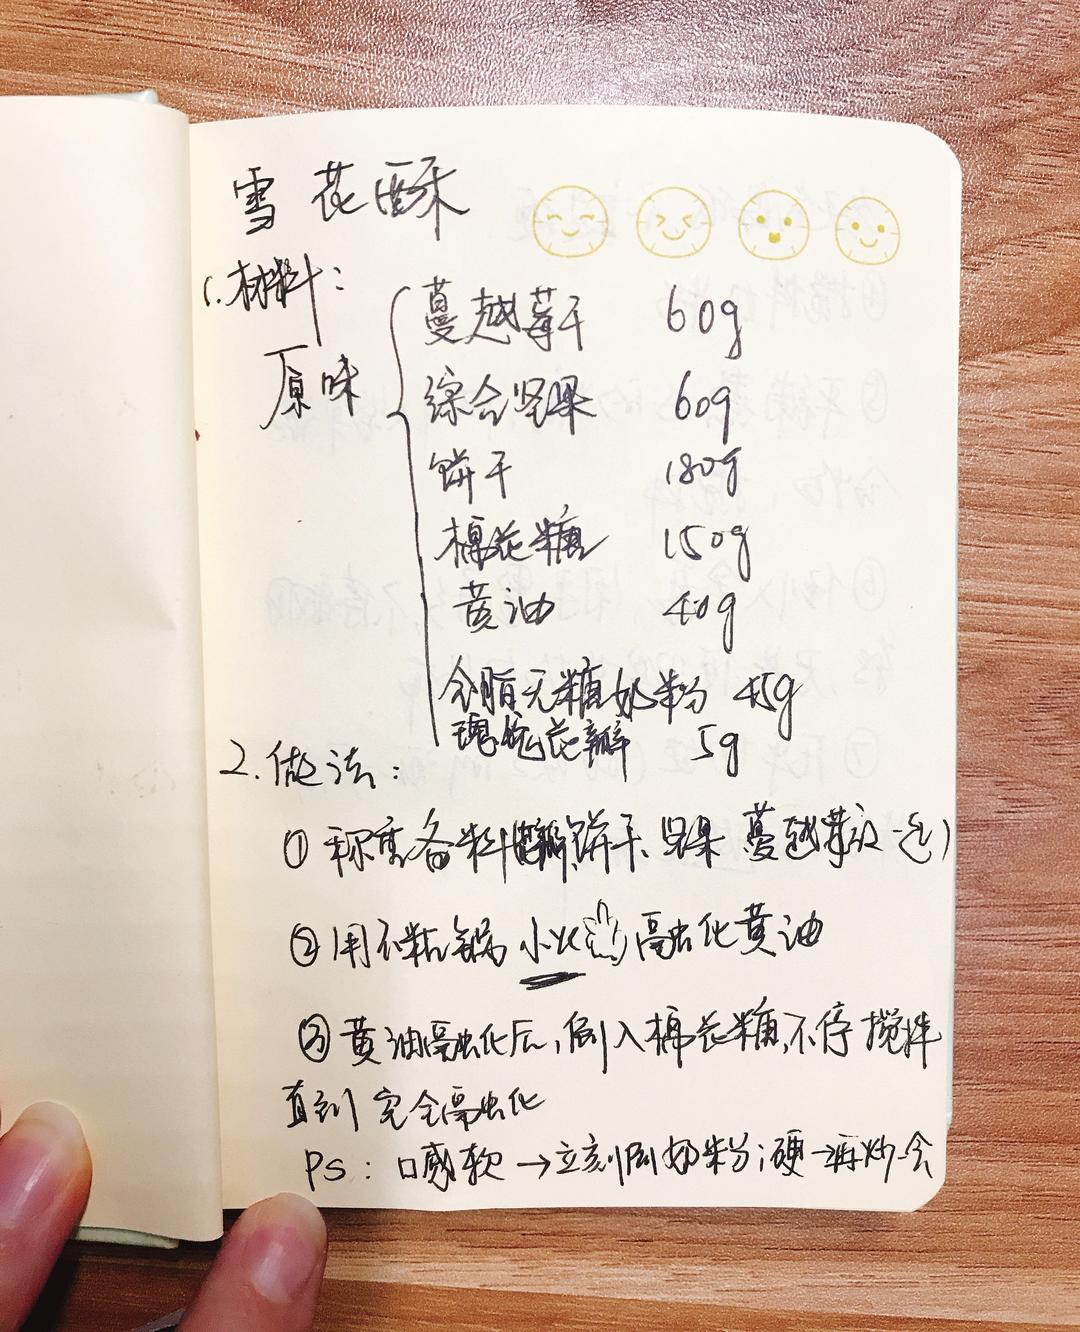 雪花酥
1.材料:
原味
蔓越莓干 60g
综合坚果 60g
饼干 180g
棉花糖 150g
黄油 40g
全脂无糖奶粉 45g
玫瑰花瓣 5g
2.做法:
① 称重备料 饼干、坚果 蔓越莓放一起)
② 用不粘锅 小火 融化黄油
③ 黄油融化后,倒入棉花糖,不停搅拌
直到完全融化
PS: 口感软→立刻倒奶粉;硬→再炒会